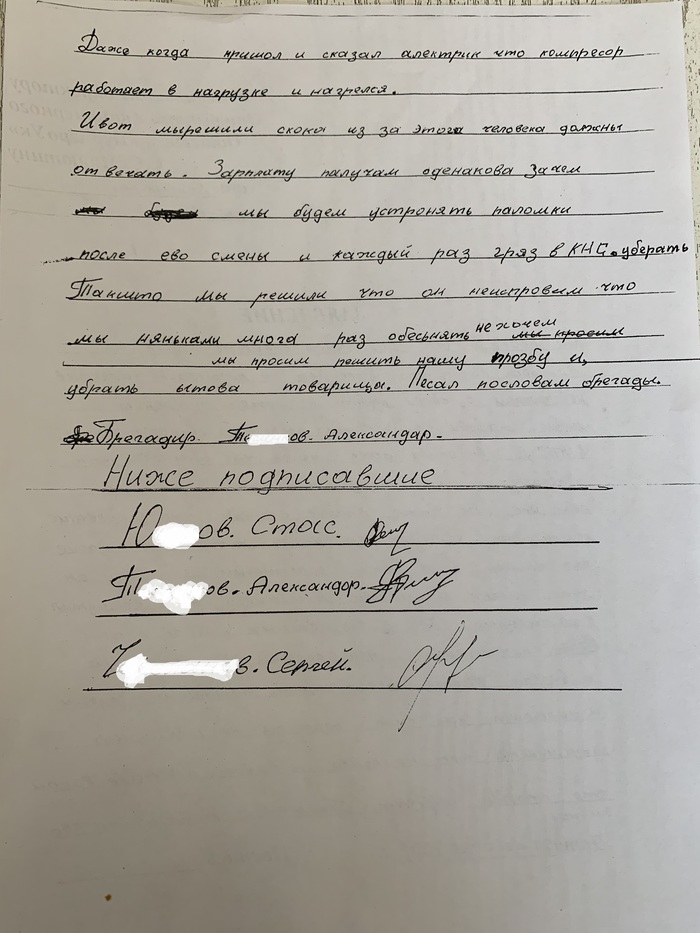 Даже когда пришол и сказал алектрик что компресор
работает в нагрузке и нагрелся.
Ивот мырешили скока из за этога человека должны
отвечать. Зарплату палучам оденакова Зачем
мы будем мы будем устронять паломки
после ево смены и каждый раз гряз в КНС. уберать
Такшто мы решили что он неисправим что
мы няньками многа раз обеснять не хочем мы просим
мы просим решить нашу прозбу и,
убрать ытова товарищы. Песал пословам брегады.
Брегадир. Т ов. Александар.
Ниже подписавшие
Ю ов. Стас.
Т ов. Александор.
в. Сергей.